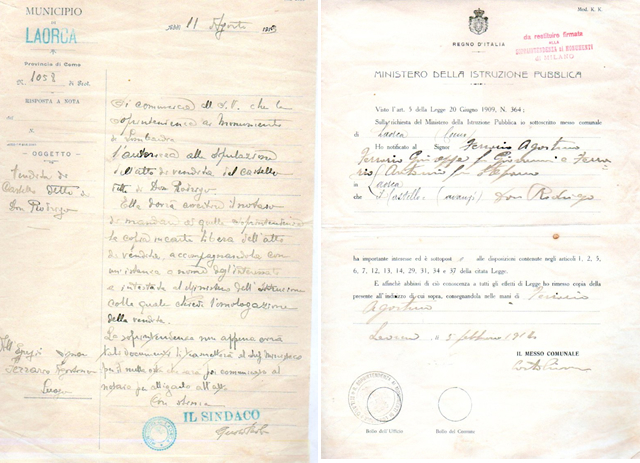 MUNICIPIO
DI
LAORCA
Provincia di Como
N. 1058 di Prot.
RISPOSTA A NOTA
N.
OGGETTO
Vendita di
Castello detto di
Don Rodrigo
11 Agosto
Si commercia all S.V. che la
soprintenza ai Monumenti
di Lombardia
l'autorizza alla stipulazione
dell'atto di vendita del Castello
detto di Don Rodrigo
Ella dovrà avvertire il notaro
di mandare a quella soprintendenza
la copia in carta libera dell'atto
di vendita, accompagnandola con
un'istanza a nome
e intestata al Ministero dell'Istruzione
colla quale chiede l'omologazione
della vendita.
La soprintendenza non appena avrà
tali documenti li trasmetterà al
per il nulla osta che sarà poi comunicato al
notaro per allegarlo all'atto.
Con stima
IL SINDACO
Signor
Mod. K. K.
REGNO D'ITALIA
da restituire firmata
ALLA
SOPRINTENDENZA AI MONUMENTI
DI MILANO
MINISTERO DELLA ISTRUZIONE PUBBLICA
Visto l'art. 5 della Legge 20 Giugno 1909, N. 364;
Sulla richiesta del Ministero della Istruzione Pubblica io sottoscritto messo comunale
di Laorca (Como)
Ho notificato al Signor Ferrario Agostino
Ferrario Giuseppe fu Giovanni e Ferra-
rio Antonio fu Stefano
in Laorca
che il Castello (avanzi) Don Rodrigo
ha importante interesse ed è sottoposto alle disposizioni contenute negli articoli 1, 2, 5,
6, 7, 12, 13, 14, 29, 31, 34 e 37 della citata Legge.
E affinchè abbiasi di ciò conoscenza a tutti gli effetti di Legge ho rimesso copia della
presente all'indirizzo di cui sopra, consegnandola nelle mani di Ferrario
Agostino
Laorca 5 febbraio 1912
IL MESSO COMUNALE
Bollo dell'Ufficio
Bollo del Comune